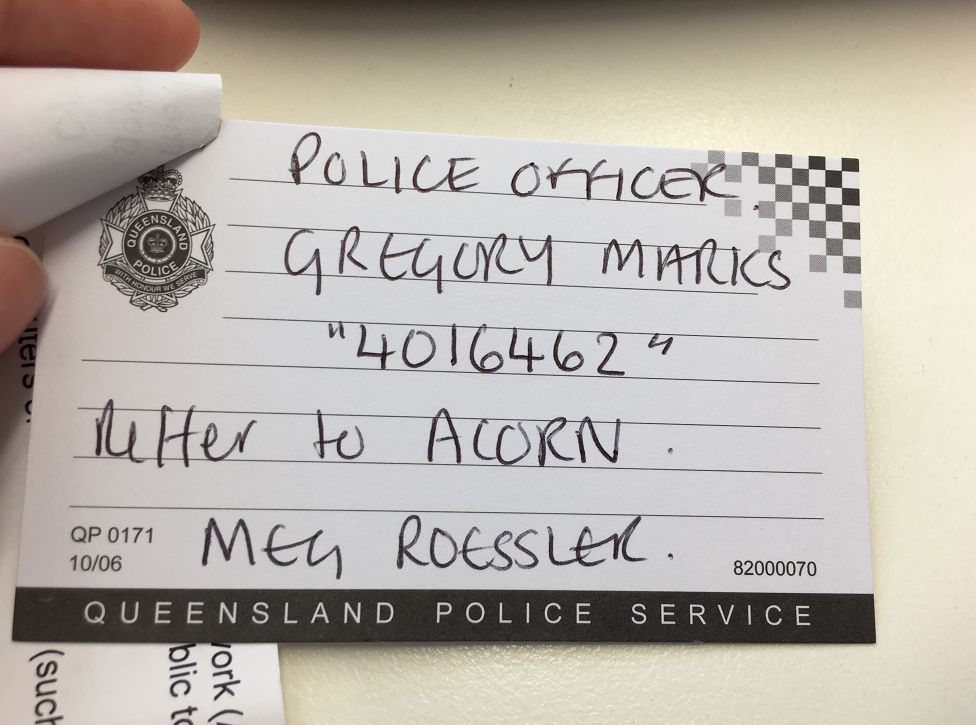 POLICE OFFICER.
GREGORY MARKS
"4016462"
Reffer to ACORN.
MEG ROESSLER.
QUEENSLAND
POLICE
WITH HONOUR WE SERVE
QP 0171
10/06
82000070
QUEENSLAND POLICE SERVICE
(such
blic to
work (